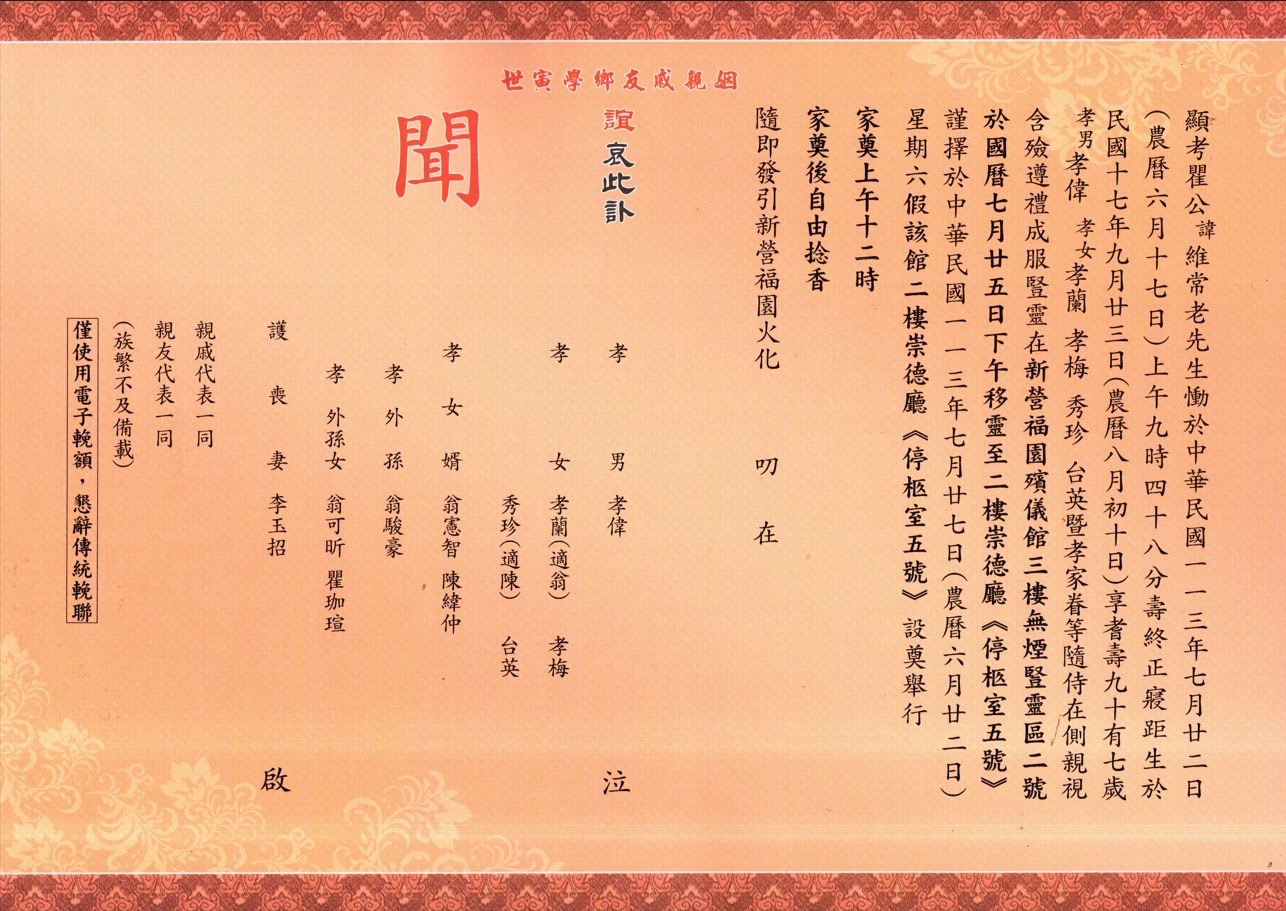 顯考瞿公諱維常老先生慟於中華民國一一三年七月廿二日
(農曆六月十七日)上午九時四十八分壽終正寢距生於
民國十七年九月廿三日(農曆八月初十日)享耆壽九十有七歲
孝男孝偉 孝女孝蘭 孝梅 秀珍 台英暨孝家眷等隨侍在側親視
含殮遵禮成服豎靈在新營福園殯儀館三樓無煙豎靈區二號
於國曆七月廿五日下午移靈至二樓崇德廳《停柩室五號》
謹擇於中華民國一一三年七月廿七日(農曆六月廿二日)
星期六假該館二樓崇德廳《停柩室五號》設奠舉行
家奠上午十二時
家奠後自由捻香
隨即發引新營福園火化 叨在
姻親戚友鄉學寅世
誼哀此訃
聞
孝男 孝偉 泣
孝女 孝蘭(適翁) 孝梅
秀珍(適陳) 台英
孝女婿 翁憲智 陳緯仲
孝外孫 翁駿豪
孝外孫女 翁可昕 瞿珈瑄
護喪妻 李玉招 啟
親戚代表一同
親友代表一同
(族繁不及備載)
僅使用電子輓額，懇辭傳統輓聯